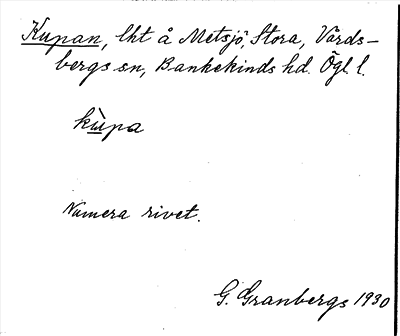 Kupan, lht å Metsjö, Stora, Vårds-
bergs sn, Bankekinds hd. Ögl l.
kùpa
Numera rivet.
G. Granbergs 1930